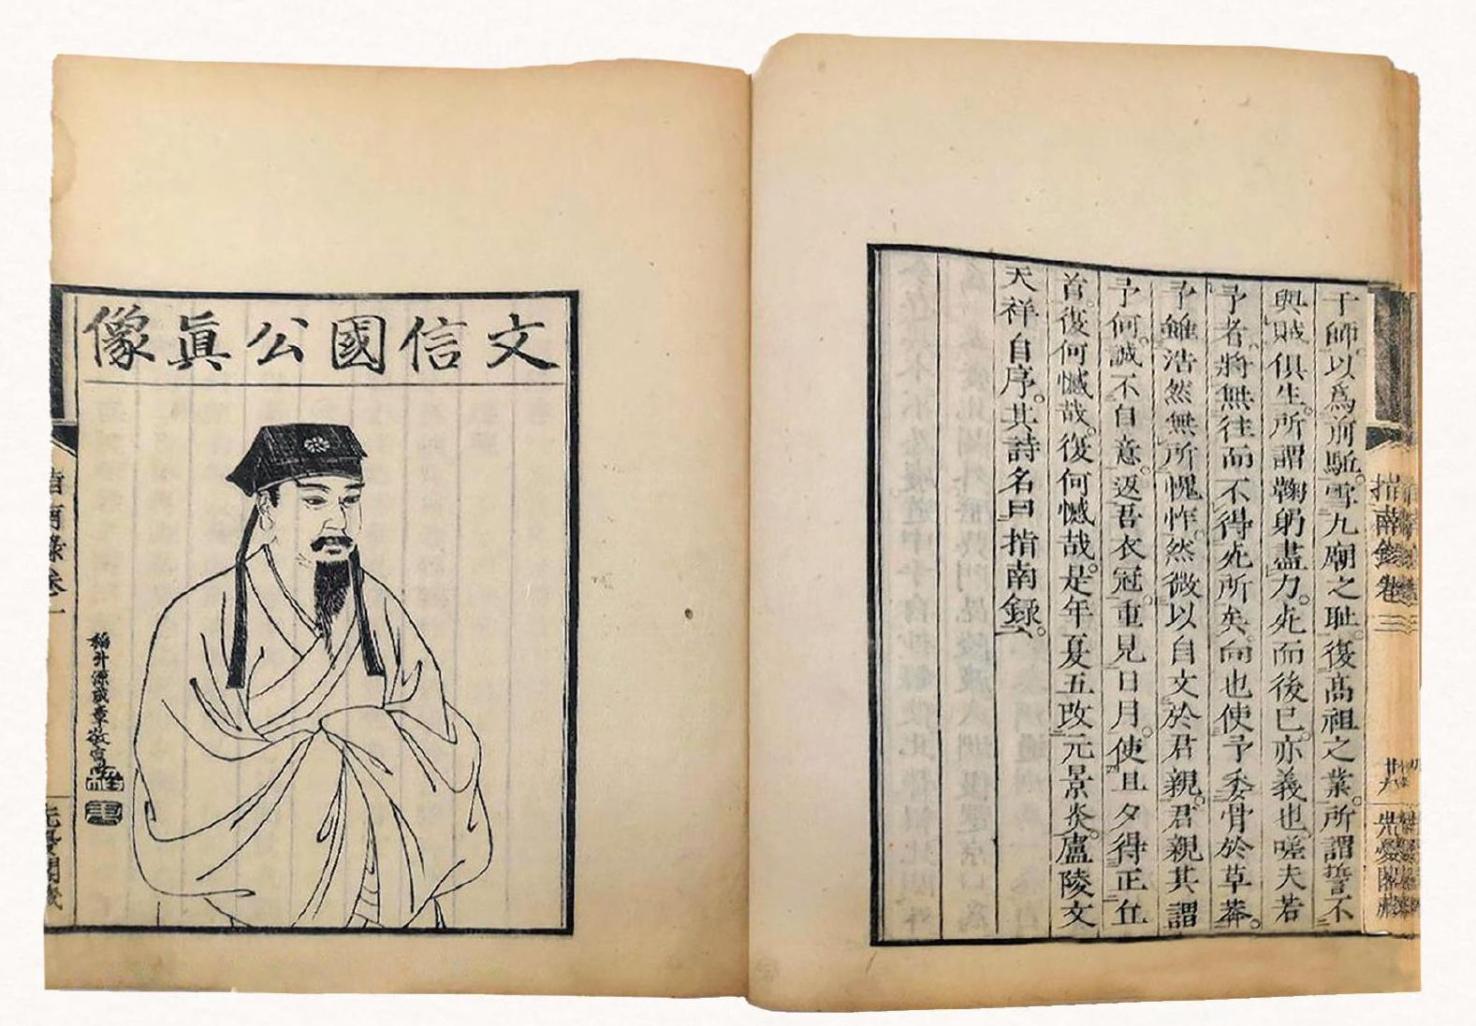 指南錄卷
于師以爲前駈。雪九廟之耻。復高祖之業。所謂誓不
與賊俱生。所謂鞠躬盡力。死而後已。亦義也。嗟夫若
予者。將無往而不得死所矣。向也使予委骨於草莽。
予雖浩然無所愧怍。然微以自文於君親。君親其謂
予何。誠不自意。返吾衣冠。重見日月。使旦夕得正丘
首。復何憾哉。復何憾哉。是年夏五改元景炎。廬陵文
天祥自序。其詩名曰指南録。
文信國公眞像
指南錄卷一